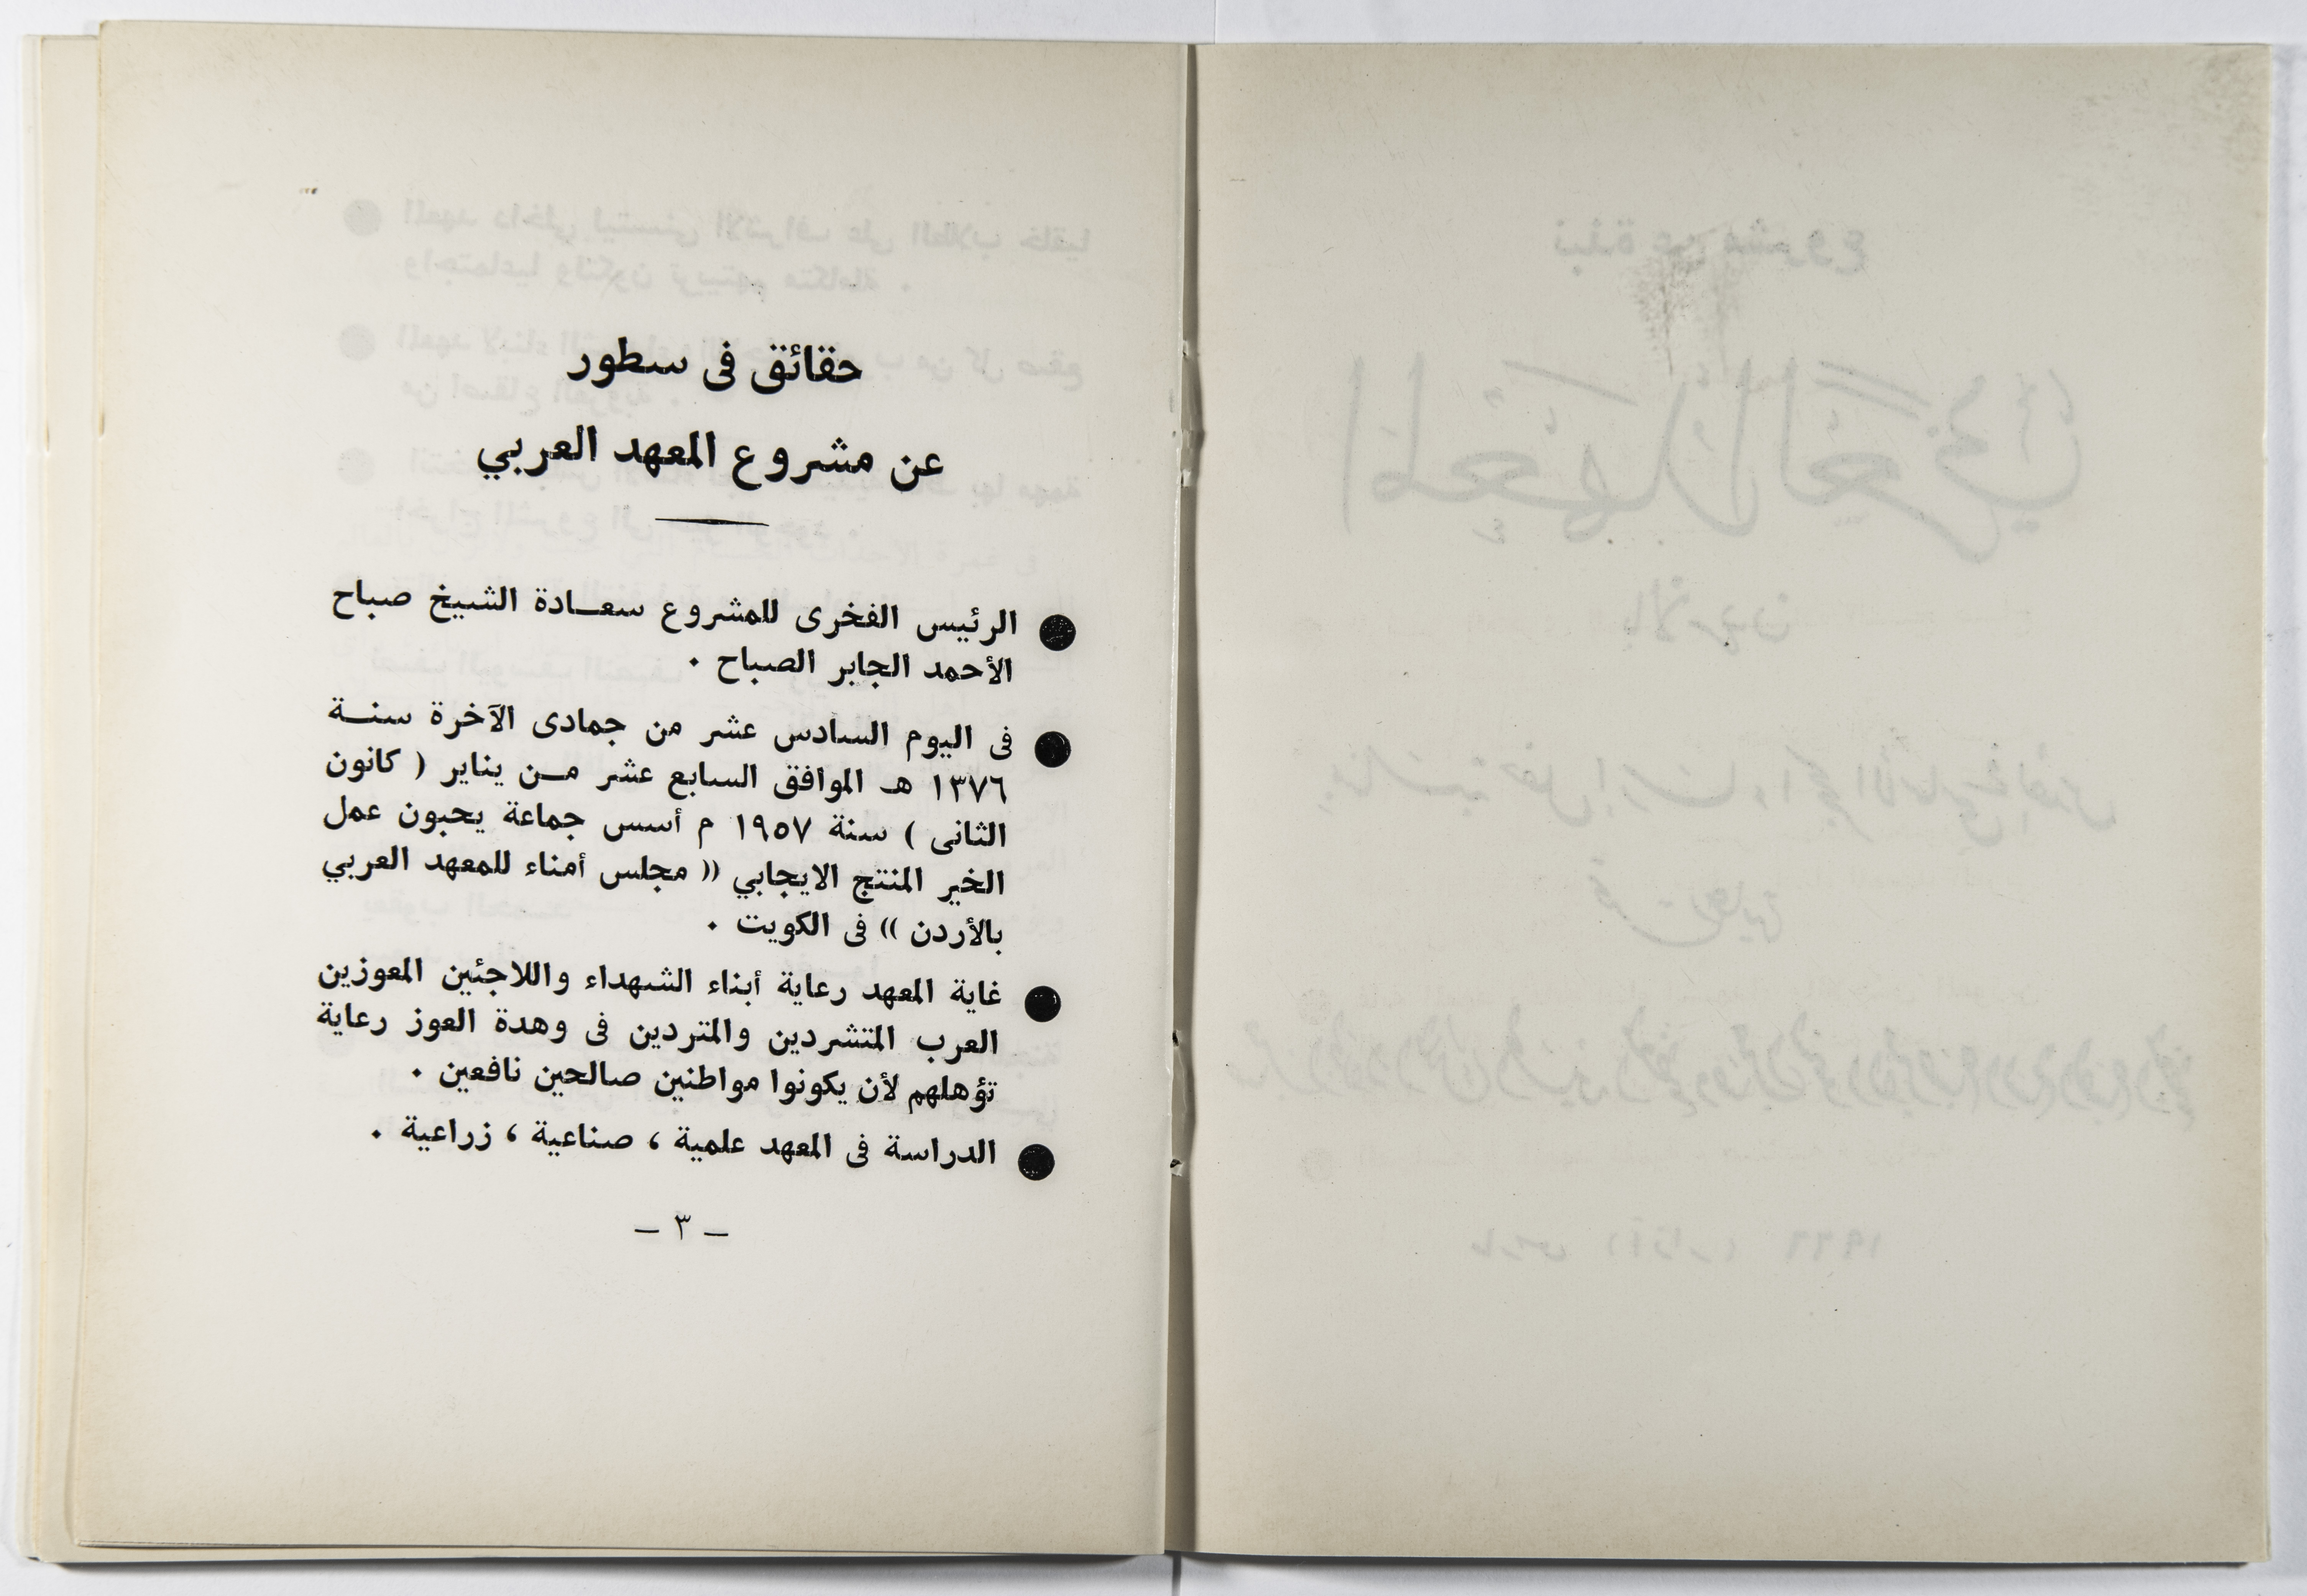 حقائق فى سطور
عن مشروع المعهد العربي
● الرئيس الفخرى للمشروع سعـادة الشيخ صباح
الأحمد الجابر الصباح .
● فى اليوم السادس عشر من جمادى الآخرة سنـة
١٣٧٦ هـ الموافق السابع عشر مـن يناير ( كانون
الثانى ) سنة ١٩٥٧ م أسس جماعة يحبون عمل
الخير المنتج الايجابي (( مجلس أمناء للمعهد العربي
بالأردن )) فى الكويت .
● غاية المعهد رعاية أبناء الشهداء واللاجئين المعوزين
العرب المتشردين والمتردين فى وهدة العوز رعاية
تؤهلهم لأن يكونوا مواطنين صالحين نافعين .
● الدراسة فى المعهد علمية ، صناعية ، زراعية .
– ٣ –